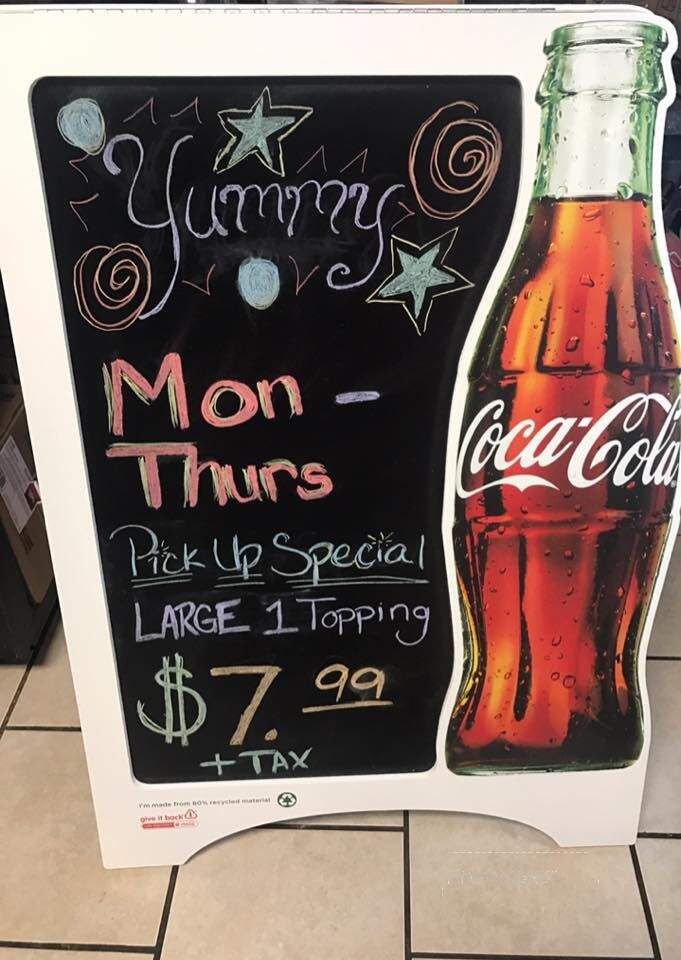 Yummy
Mon -
Thurs
Pick Up Special
LARGE 1 Topping
$7.99
+ TAX
Coca-Cola
I'm made from 60% recycled material
give it back